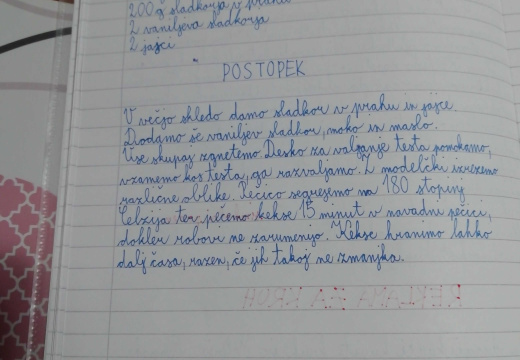 200g sladkorja v prahu
2 vaniljeva sladkorja
2 jajci
POSTOPEK
V večjo skledo damo sladkor v prahu in jajce.
Dodamo še vaniljev sladkor, moko in maslo.
Vse skupaj zgnetemo. Desko za valjanje testa pomokamo,
vzamemo kos testa, ga razvaljamo. Z modelčki izrežemo
različne oblike. Pečico segrejemo na 180 stopinj
Celzija ter pečemo kekse 15 minut v navadni pečici,
dokler robovi ne zarumenijo. Kekse hranimo lahko
dalj časa, razen, če jih takoj ne zmanjka.
REKLAMA ZA KROH